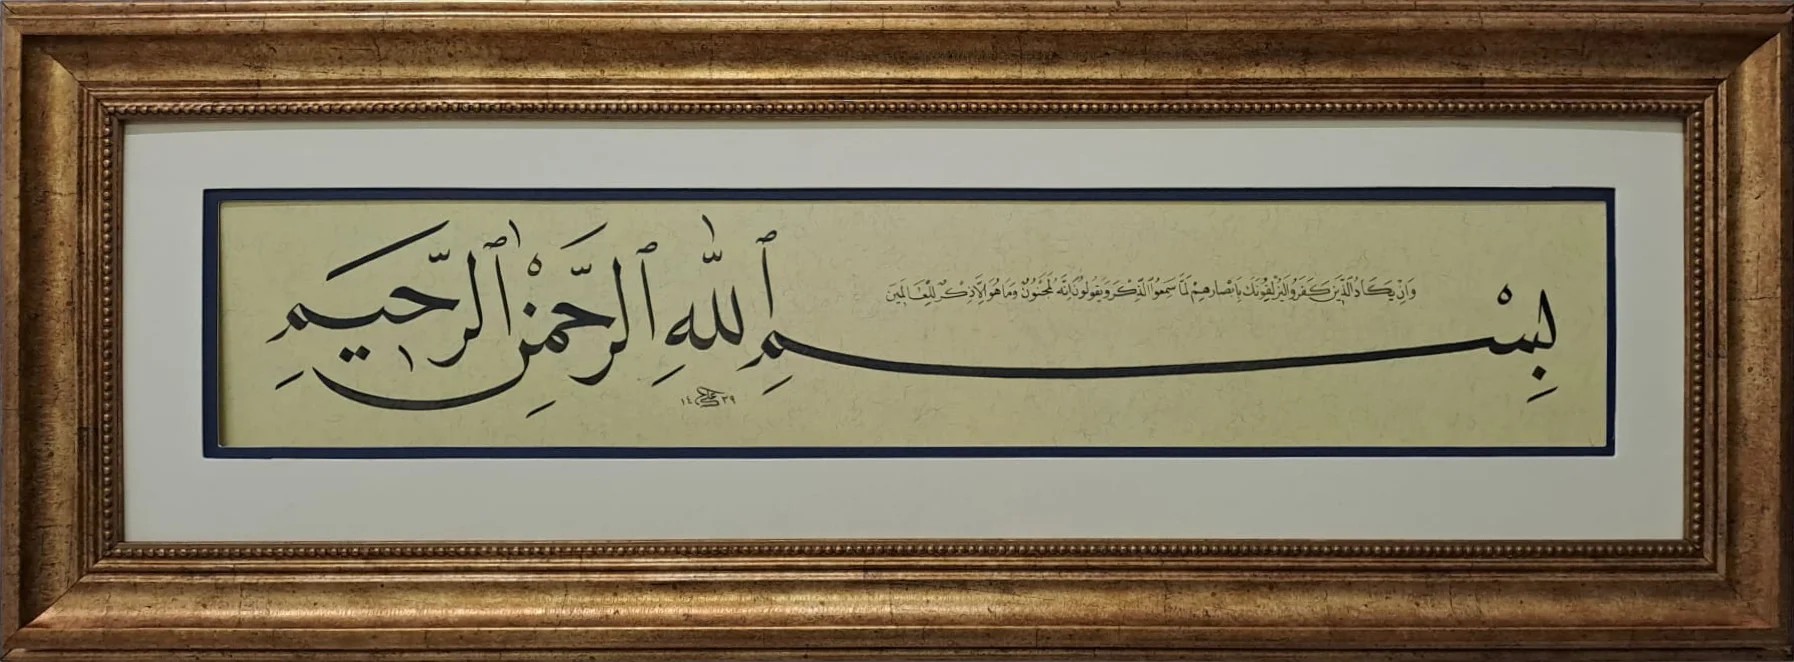 بِسْمِ ٱللّٰهِ ٱلرَّحْمٰنِ ٱلرَّحِيمِ
وَاِنْ يَكَادُ الَّذٖينَ كَفَرُوا لَيُزْلِقُونَكَ بِاَبْصَارِهِمْ لَمَّا سَمِعُوا الذِّكْرَ وَيَقُولُونَ اِنَّهُ لَمَجْنُونٌ وَمَا هُوَ اِلَّا ذِكْرٌ لِلْعَالَمٖينَ
١٤٣٩